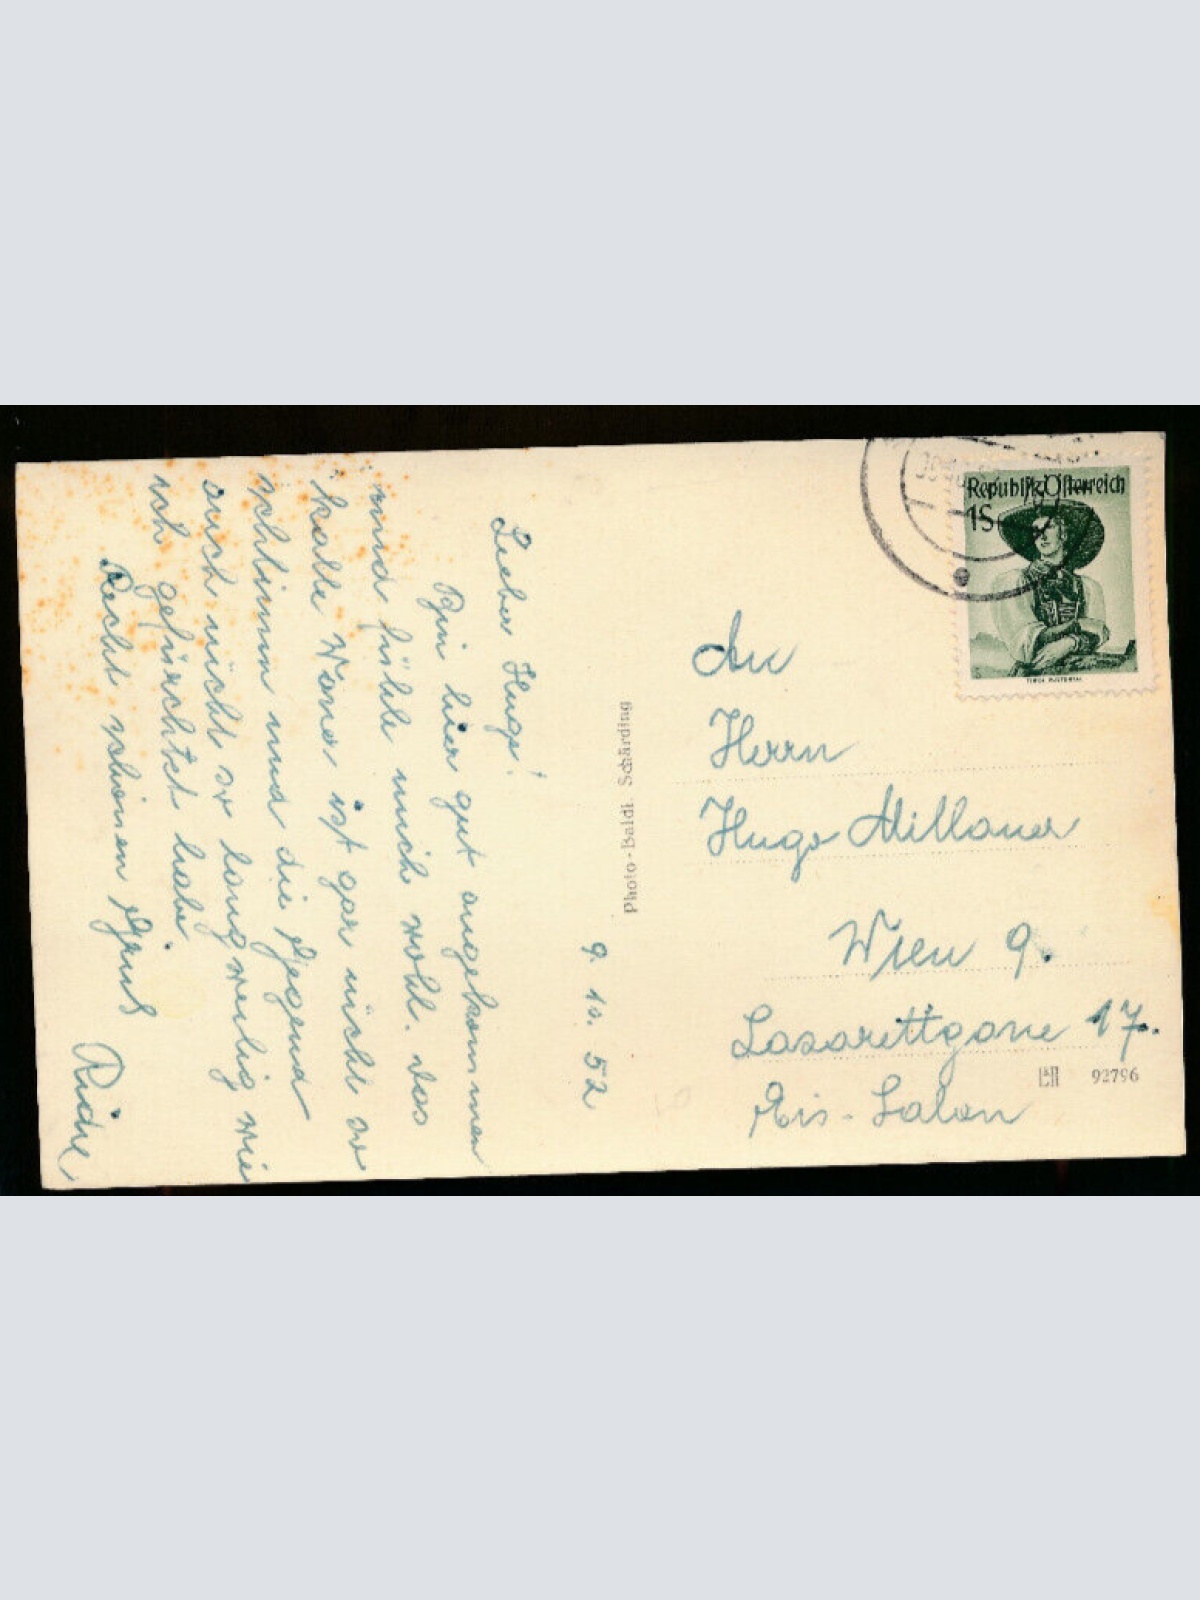 9. 10. 52
Lieber Hugo!
Bin hier gut angekommen
und fühle mich wohl. Das
kalte Wasser ist gar nicht so
schlimm und die Gegend
auch nicht so langweilig wie
ich gefürchtet habe
Recht schönen Gruß
Photo-Baldi Schärding
Republik Österreich
1S
TIROL PUSTERTAL
An
Herrn
Hugo Millauer
Wien 9.
Lasarettgasse 17.
Eis-Salon
92796